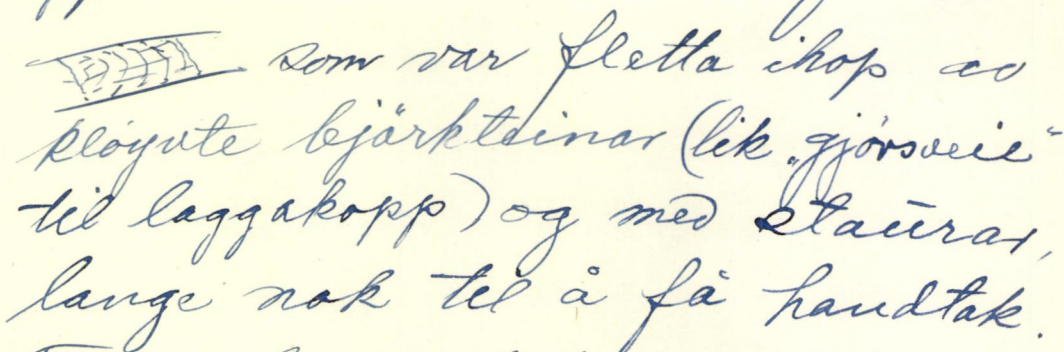 som var fletta ihop av
kløyvte bjärkteinar (lik „gjörsveie“
til laggakopp) og med staurar,
lange nok til å få handtak.